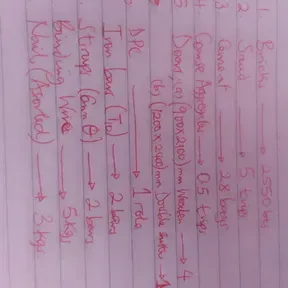 1. Bricks → 2550 bks
2 Sand → 5 trips
3 Cement → 28 bags
4 Coarse Aggregates → 0.5 trips
5 Doors, (a) (900x2100) mm Wooden → 4
(b) (1200x2400) mm Double →
DPC → 1 role
Iron bars (T10) → 2 bars
Stirrups (6mm θ) → 2 bars
Binding Wire → 5 Kgs
Nails (Assorted) → 3 kgs